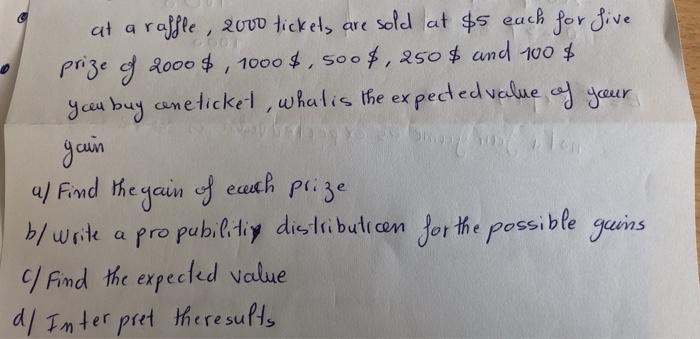 at a raffle, 2000 tickets are sold at $5 each for five
prize of 2000 $, 1000 $, 500 $, 250 $ and 100 $
you buy one ticket, what is the expected value of your
gain
a/ Find the gain of each prize
b/ write a propubilitiy distribution for the possible gains
c/ Find the expected value
d/ Interpret the results